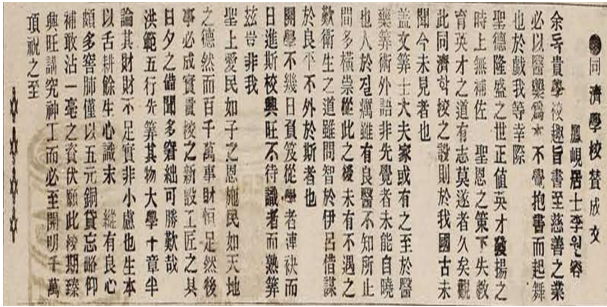 同濟學校贊成文
鳳峴居士李원容
余독貴學校趣旨書至慈善之業
必以醫藥爲本不覺抱書而起舞
也於戲我等幸際
聖德隆盛之世正値英才發揚之
時上無補佐 聖恩之策下失敎
育英才之道有志莫遂者久矣觀
此同濟학校之設則於我國古未
聞今未見者也
盖文筭士大夫家或有之至於醫
藥筭術外語非先覺者未能自曉
也人於癘雖有良醫不知所止
間多橫祟從此之 未有不遇之
歎衛生之道雖問智於伊呂借謀
於良平不外於斯者也
開學不幾日負笈從學者連袂而
日進斯校興旺不待識者而熟筭
玆豈非我
聖上愛民如子之恩施民如天地
之德然而百千萬事財恒足然後
事必成實貴校之新設工匠之具
日夕之備聞多窘絀可勝歎哉
洪範五行先筭其物大學十章半
論其財財不足實非小慮也生本
以舌耕餘生心識末 有良心
頗多窘 僅以五元銅貸忘略仰
補敢沾一毫之資伏願此校期臻
興旺講究神工而必至開明千萬
頂祝之至